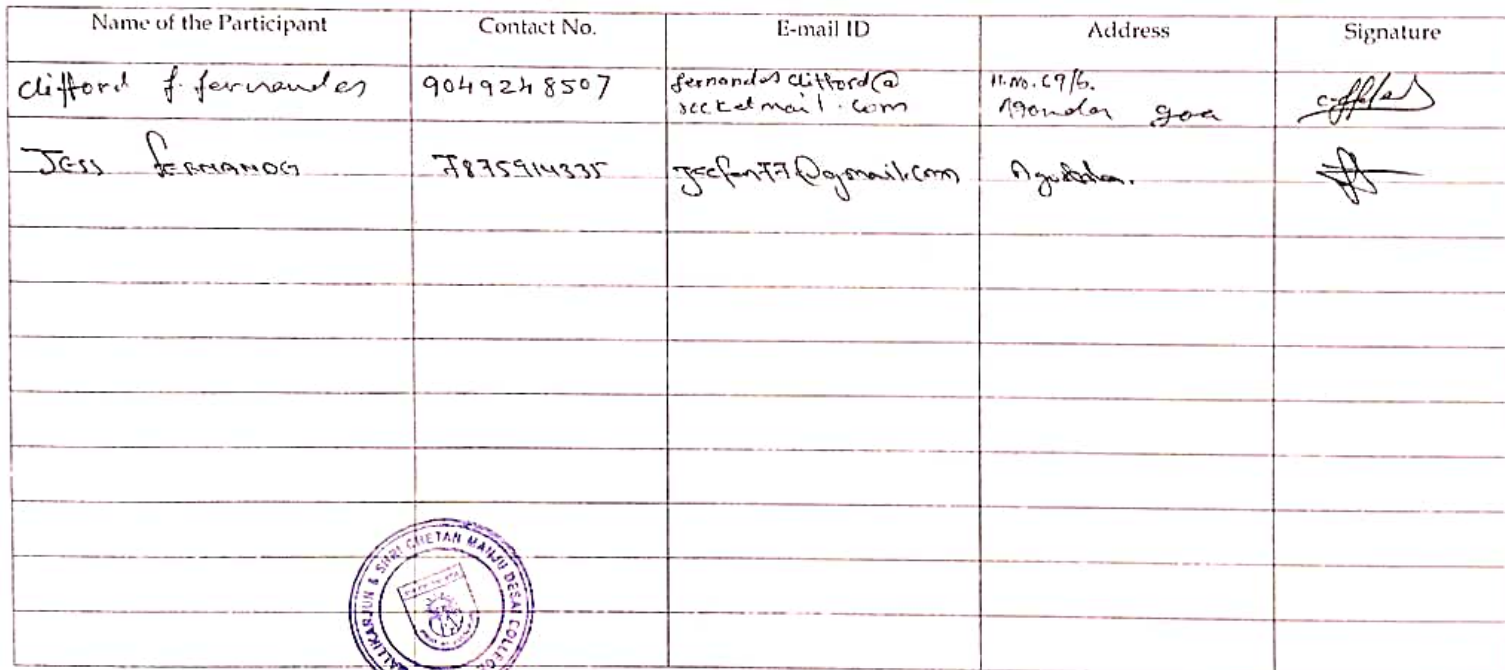 Name of the Participant Contact No. E-mail ID Address Signature
Clifford f. fernandes 9049248507 fernandesclifford@ H.No. 67/b.
rocketmail.com Agonda goa
JESS FERNANDES 7875914335 jecfan77@gmail.com
MALLIKARJUN & SHRI CHETAN MANJU DESAI COLLEGE